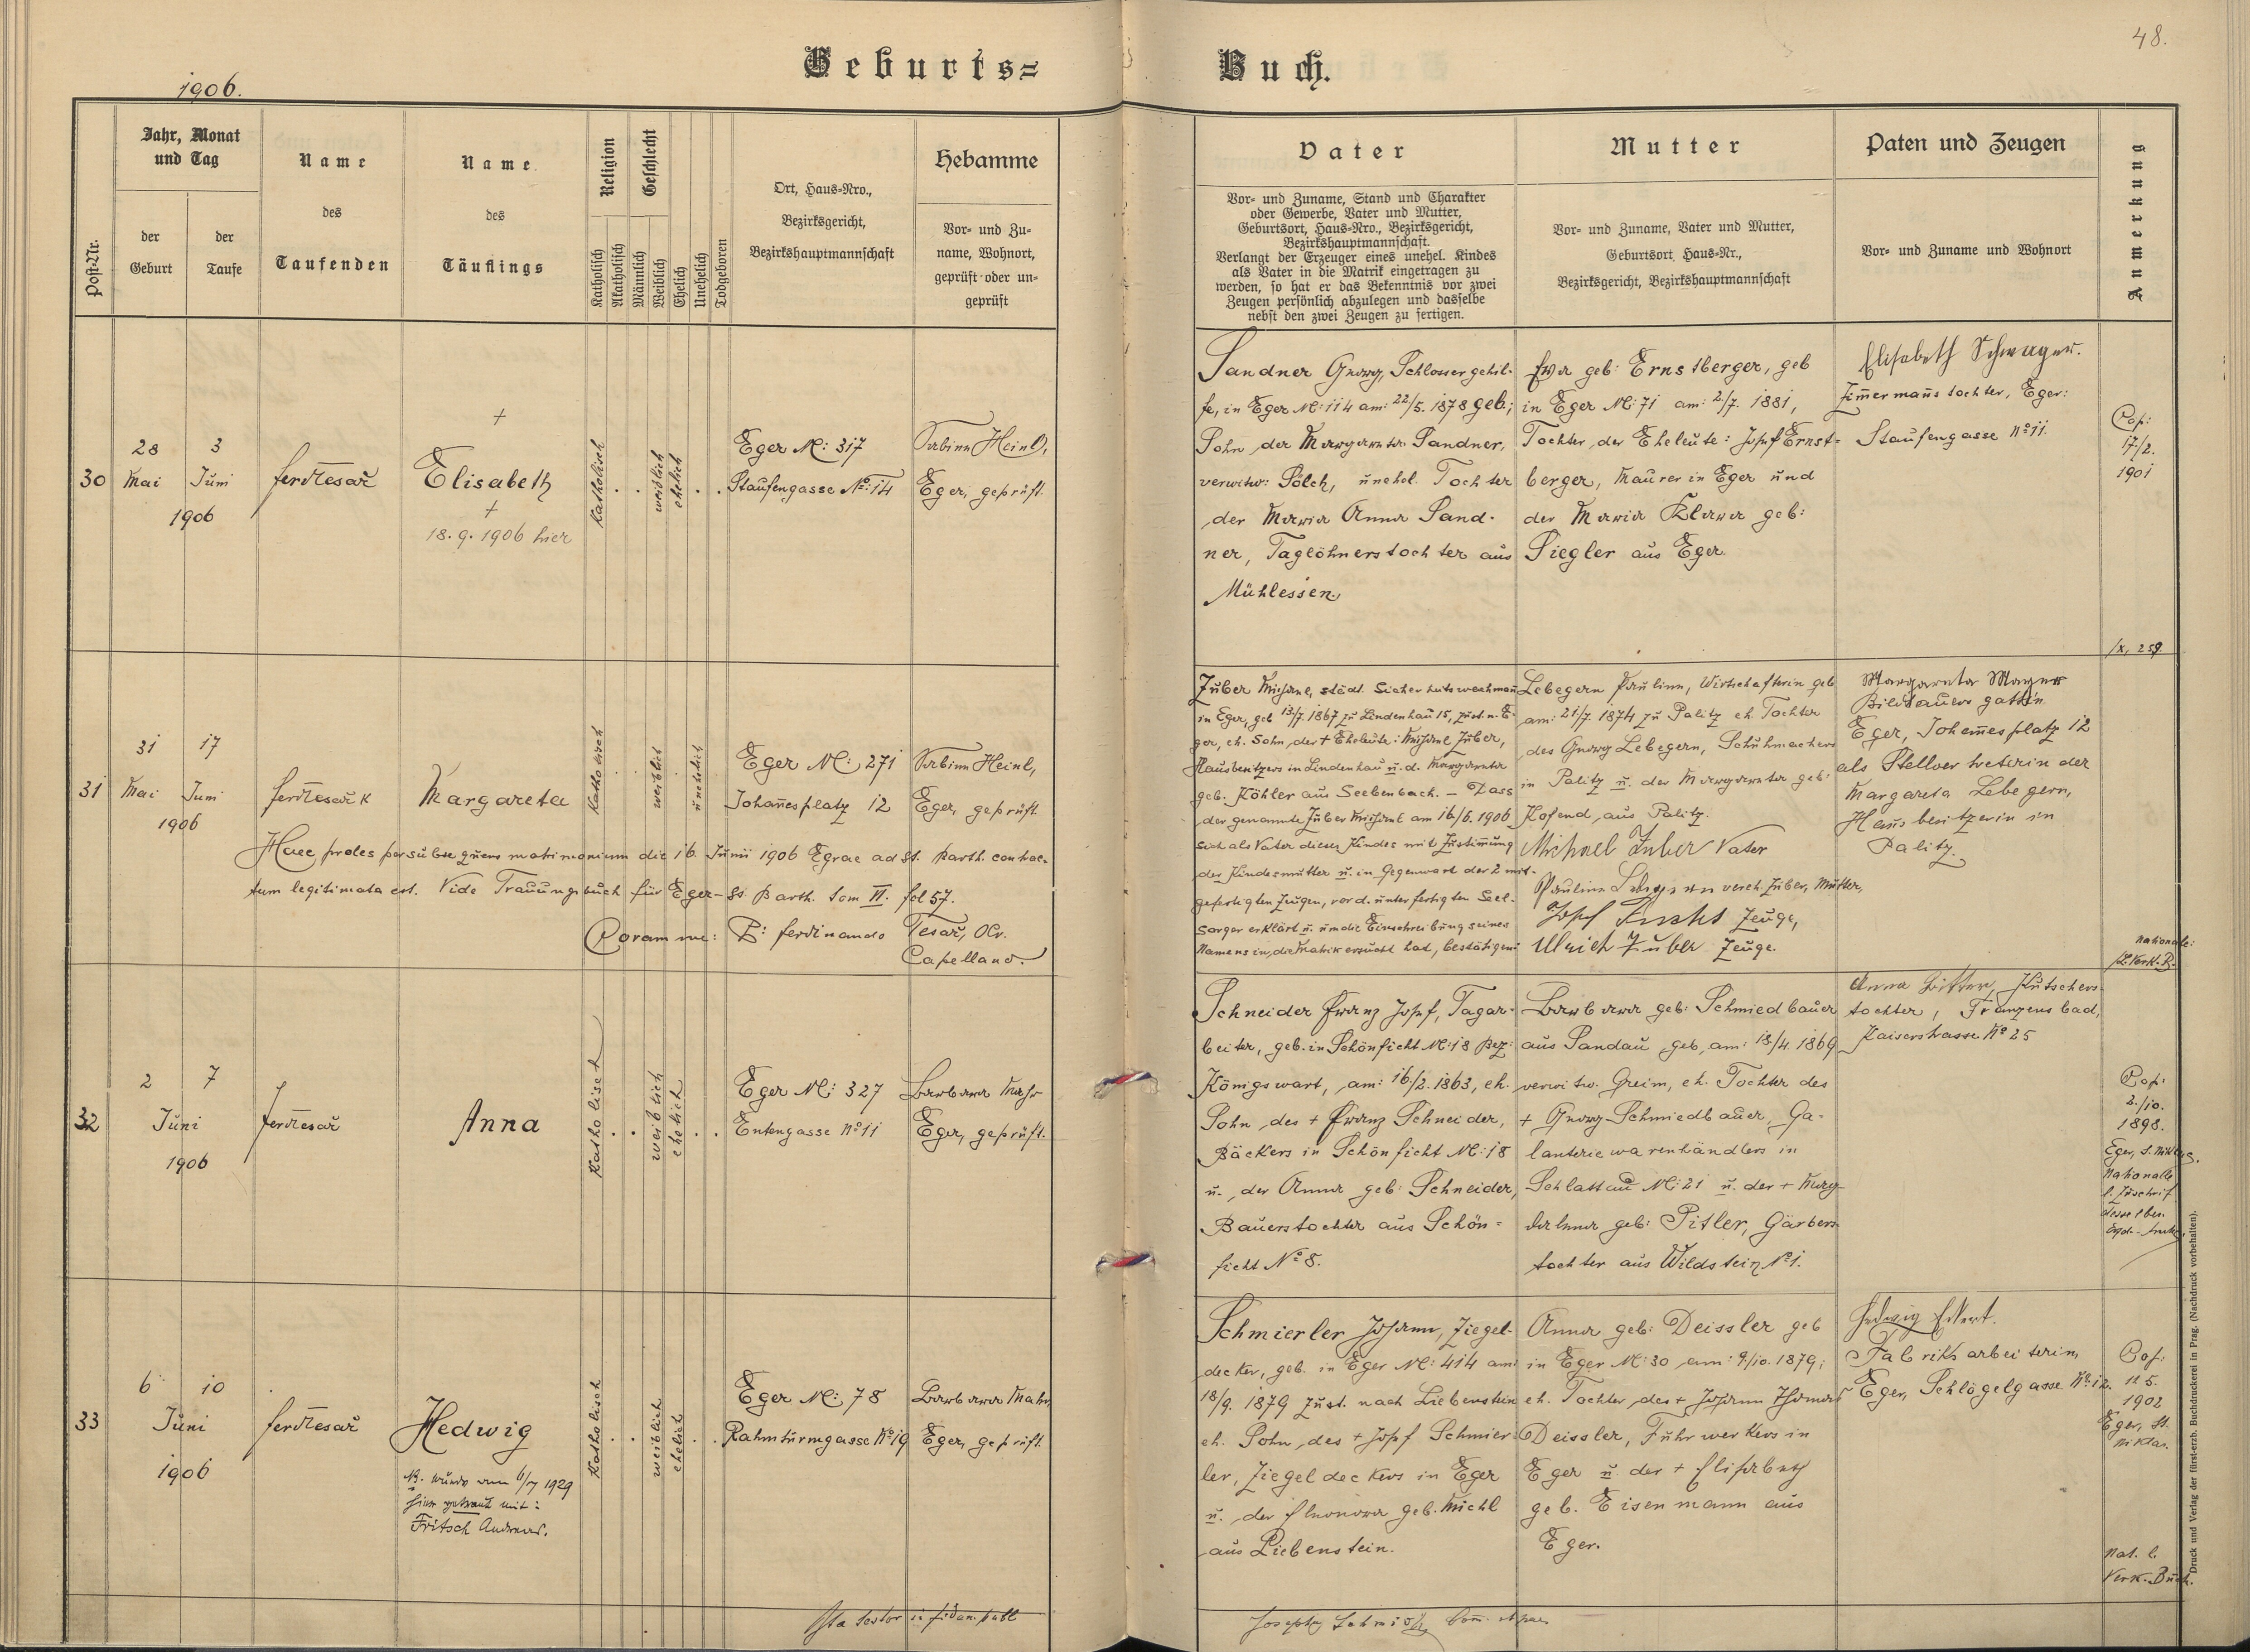 48.
Geburts=Buch.
1906.
Post-Nr.
Jahr, Monat
und Tag
der
Geburt
der
Taufe
Name
des
Taufenden
Name
des
Täuflings
Religion
Katholisch
Akatholisch
Geschlecht
Männlich
Weiblich
Ehelich
Unehelich
Todgeboren
Ort, Haus-Nro.,
Bezirksgericht,
Bezirkshauptmannschaft
Hebamme
Vor- und Zu-
name, Wohnort,
geprüft oder un-
geprüft
Vater
Vor- und Zuname, Stand und Charakter
oder Gewerbe, Vater und Mutter,
Geburtsort, Haus-Nro., Bezirksgericht,
Bezirkshauptmannschaft.
Verlangt der Erzeuger eines unehel. Kindes
als Vater in die Matrik eingetragen zu
werden, so hat er das Bekenntnis vor zwei
Zeugen persönlich abzulegen und dasselbe
nebst den zwei Zeugen zu fertigen.
Mutter
Vor- und Zuname, Vater und Mutter,
Geburtsort, Haus-Nr.,
Bezirksgericht, Bezirkshauptmannschaft
Paten und Zeugen
Vor- und Zuname und Wohnort
Anmerkung
30
28 3
Mai Juni
1906
ferd Tesař
+
Elisabeth
+
18.9.1906 hier
Katholisch
weiblich
ehelich
Eger N: 317
Staufengasse No: 14
Sabina Heinl,
Eger, geprüft.
Sandner Georg, Schlossergehil-
fe, in Eger N: 114 am: 22/5. 1878 geb.;
Sohn der Margareta Sandner,
verwitw: Pölch, unehel. Tochter
der Maria Anna Sand-
ner, Taglöhnerstochter aus
Mühlessen.
Eva geb: Ernstberger, geb
in Eger N: 71 am: 2/7. 1881,
Tochter der Eheleute: Josef Ernst-
berger, Maurer in Eger und
der Maria Klara geb:
Siegler aus Eger.
Elisabeth Schwager.
Zimermanstochter, Eger:
Staufengasse No 11.
Cop:
17/2.
1901
31
31 17
Mai Juni
1906
ferd Tesař k
Margareta
Katholisch
weiblich
unehelich
Eger N: 271
Johanesplatz 12
Sabina Heinl,
Eger, geprüft.
Haec proles per subsequens matrimonium die 16. Junii 1906 Egrae ad St. Barth. contrac-
tum legitimata est. Vide Trauungsbuch für Eger-St. Barth. tom VI. fol 57.
Coram me: P: ferdinando Tesař,
Capellano.
Zuber Michael, städt. Sicherheitswachman
in Eger, geb 13/7. 1867 zu Lindenhau 15, zust. n. E-
ger, eh. Sohn der + Eheleute: Michael Zuber,
Hausbesitzers in Lindenhau u. d. Margareta
geb. Köhler aus Seebenbach. – Dass
der genannte Zuber Michael am 16/6. 1906
sich als Vater dieses Kindes mit Zustimung
der Kindesmutter u. in Gegenwart der 2 mit-
gefertigten Zeugen, vor d. unterfertigten Seel-
sorger erklärt u. um die Einschreibung seines
Namens in die Matrik ersucht hat, bestätigen:
Lebegern Paulina, Wirtschafterin geb
am: 21/7. 1874 zu Palitz eh. Tochter
des Georg Lebegern, Schuhmachers
in Palitz u. der Margareta geb:
Hofend, aus Palitz.
Michael Zuber Vater
Paulina Lebegern vereh. Zuber, Mutter,
Josef Fuchs Zeuge,
Ulrich Zuber Zeuge.
Margareta Mayer
Bildhauers gattin
Eger, Johanesplatz 12
als Stellvertreterin der
Margareta Lebegern,
Hausbesitzerin in
Palitz.
32
2 7
Juni
1906
ferd Tesař
Anna
Katholisch
weiblich
ehelich
Eger N: 327
Entengasse No 11
Barbara Mahr
Eger, geprüft.
Schneider Franz Josef, Tagar-
beiter, geb. in Schönficht N: 18 Bez:
Königswart, am: 16./2. 1863, eh.
Sohn des + Franz Schneider,
Bäckers in Schönficht N: 18
u. der Anna geb: Schneider,
Bauerstochter aus Schön-
ficht No 8.
Barbara geb: Schmiedbauer
aus Sandau geb. am: 18/4. 1869
verwitw. Greim, eh. Tochter des
+ Georg Schmiedbauer, Ga-
lanteriewarenhändlers in
Schlattau N: 21 u. der + Mag-
dalena geb: Pitler, Gärbers-
tochter aus Wildstein No 1.
Anna Kutschers-
tochter, Franzensbad,
Kaiserstrasse No 25
Cop:
2./10.
1898.
33
6 10
Juni
1906
ferd Tesař
Hedwig
NB. wurde am 6/7 1929
hier getraut mit:
Fritsch Andreas.
Katholisch
weiblich
ehelich
Eger N: 78
Rahmturmgasse No 19
Barbara Mahr,
Eger, geprüft.
Schmierler Johann, Ziegel-
decker, geb. in Eger N: 414 am:
18/9. 1879 zust. nach Liebenstein
eh. Sohn des + Josef Schmier-
ler, Ziegeldeckers in Eger
u. der Eleonora geb. Michl
aus Liebenstein.
Anna geb: Deissler geb
in Eger N: 30 am: 9/10. 1879;
eh. Tochter des + Johann Thomas
Deissler, Fuhrwerkers in
Eger u. der + Elisabeth
geb. Eisenmann aus
Eger.
Hedwig Eckert.
Fabriksarbeiterin,
Eger, Schlögelgasse No: 12.
Cop:
1902
Eger, St.
Niklas.
Nat. l.
Verk.-Buch.
Druck und Verlag der fürst-erzb. Buchdruckerei in Prag. (Nachdruck vorbehalten).